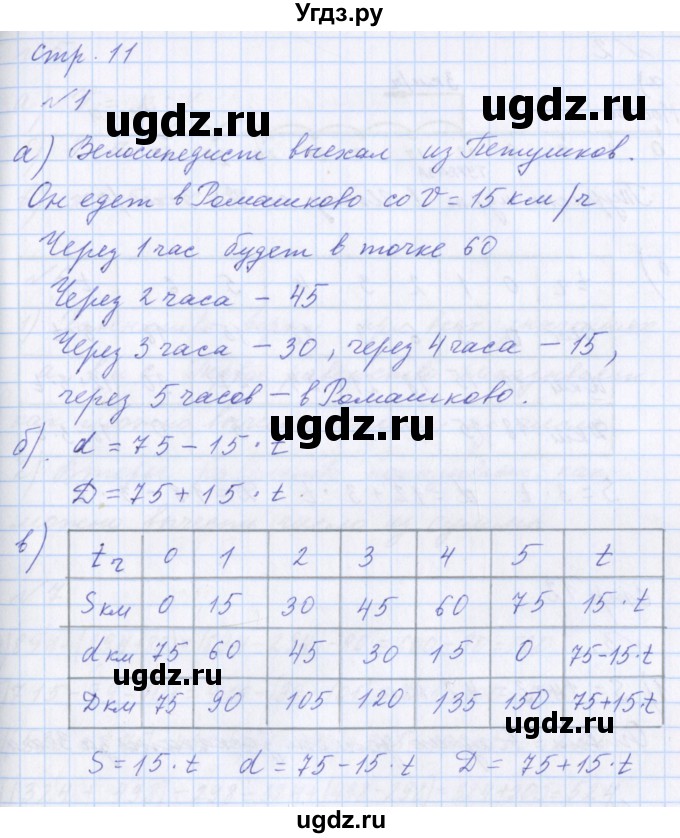 Угдз.ру
стр. 11
№1
а) Велосипедист выехал из Петушков.
Он едет в Ромашково со V = 15 км/ч
Через 1 час будет в точке 60
Через 2 часа – 45
Через 3 часа – 30, через 4 часа – 15,
через 5 часов – в Ромашково.
б). d = 75 – 15 · t
D = 75 + 15 · t.
в)
t ч 0 1 2 3 4 5 t
S км 0 15 30 45 60 75 15 · t
d км 75 60 45 30 15 0 75-15·t
D км 75 90 105 120 135 150 75+15·t
S = 15 · t d = 75 – 15 · t D = 75 + 15 · t
ugdz.ru
ugdz.ru
ugdz.ru
ugdz.ru
ugdz.ru
ugdz.ru
ugdz.ru
ugdz.ru
Угдз.ру